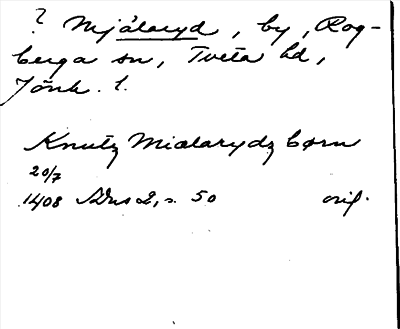 ? Mjälaryd, by, Rog-
berga sn, Tveta hd,
Jönk. l.
Knutz Mialarydz børn
20/7
1408 SDns 2, s. 50 orig.